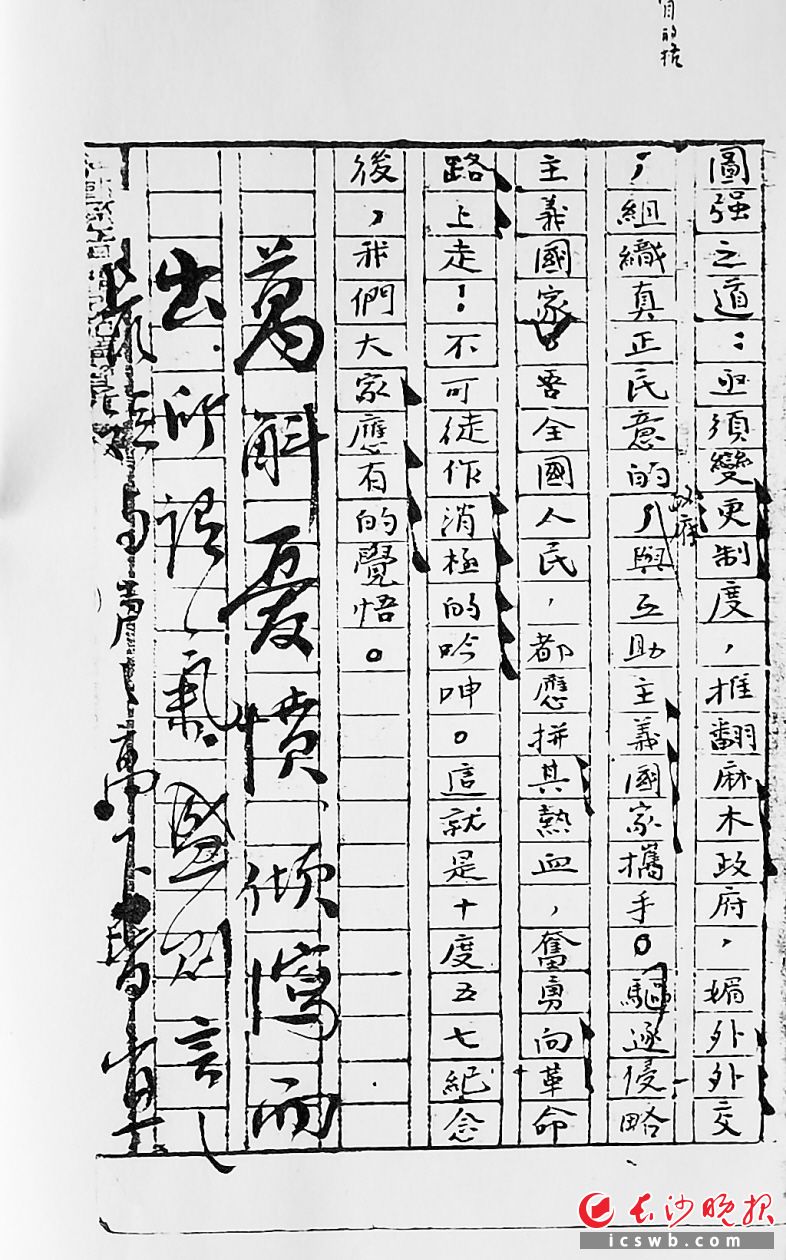 目的抗
圖强之道：亟須變更制度，推翻麻木政府，媚外外交
，組織真正民意的政府，與互助主義國家攜手。驅逐侵略
主義國家。吾全國人民，都應拼其熱血，奮勇向革命
路上走！不可徒作消極的吟呻。這就是十度五七紀念
後，我們大家應有的覺悟。
萬斛憂憤傾瀉而
出所謂氣盛則言之
短與聲之高下皆宜
长沙晚报
icswb.com